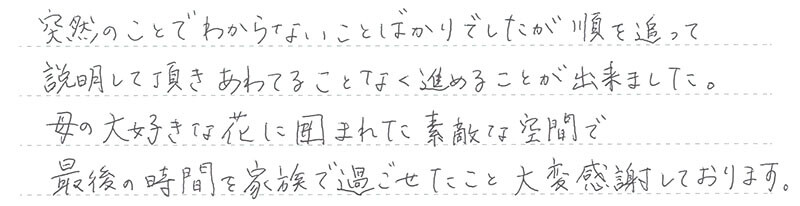 突然のことでわからないことばかりでしたが順を追って
説明して頂きあわてることなく進めることが出来ました。
母の大好きな花に囲まれた素敵な空間で
最後の時間を家族で過ごせたこと大変感謝しております。